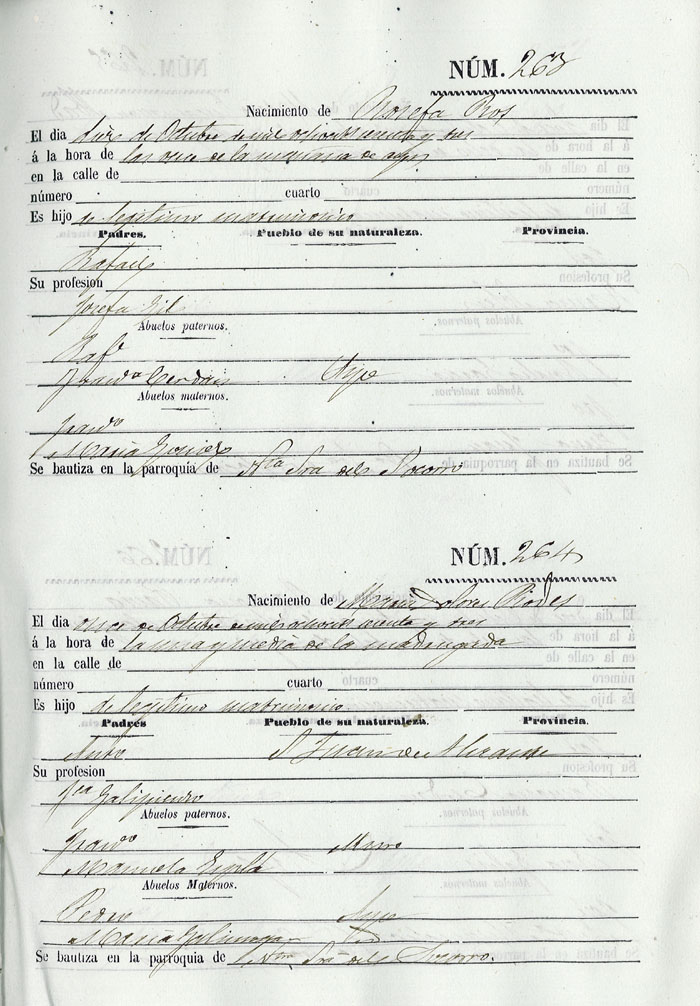 NÚM. 263
Nacimiento de Josefa Ros
El dia diez de Octubre de mil ochocts. y tres
á la hora de las once de la mañana de ayer
en la calle de
número cuarto
Es hijo de legitimo matrimonio
Padres. Pueblo de su naturaleza. Provincia.
Rafael
Su profesion
Josefa Gil
Abuelos paternos.
Raf.l
Fran.ca Cerdan Aspe
Abuelos maternos.
Fran.co
María
Se bautiza en la parroquia de Ntra Sra del Socorro
NÚM. 264
Nacimiento de María Dolores Rodes
El dia once de Octubre de mil ochocts. y tres
á la hora de la una y media de la madrugada
en la calle de
número cuarto
Es hijo de legitimo matrimonio
Padres Pueblo de su naturaleza. Provincia.
Anto. S. Juan de Alicante
Su profesion
Galipienso
Abuelos paternos.
Fran.co Muro
Manuela Esplá
Abuelos Maternos.
Pedro Aspe
María
Se bautiza en la parroquia de Ntra Sra del Socorro.